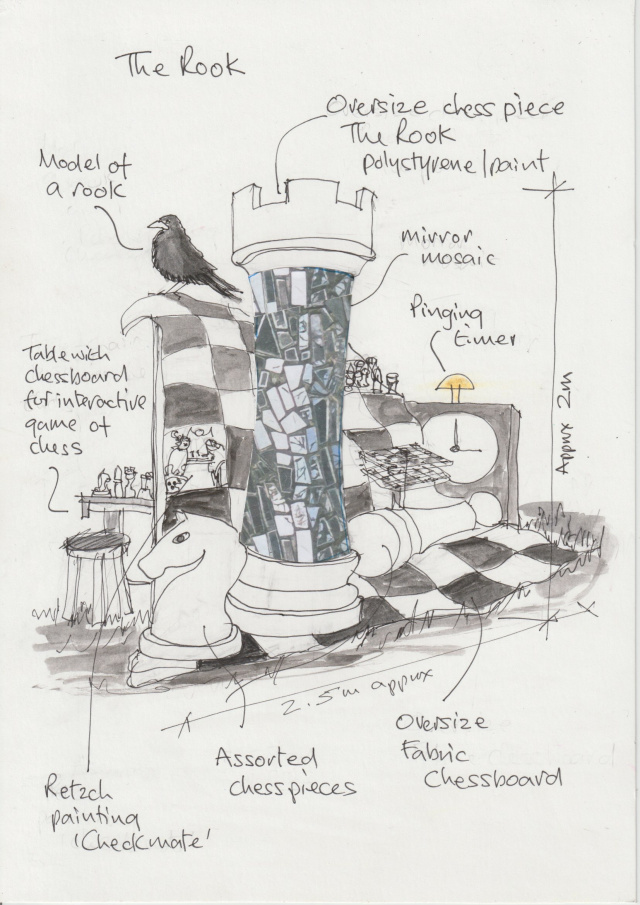 The Rook
Oversize chess piece
The Rook
polystyrene/paint
Model of
a rook
mirror
mosaic
Pinging
timer
Table with
chessboard
for interactive
game of
chess
Approx 2m
2.5m approx
Oversize
Fabric
Chessboard
Assorted
chesspieces
Retzch
painting
'Checkmate'